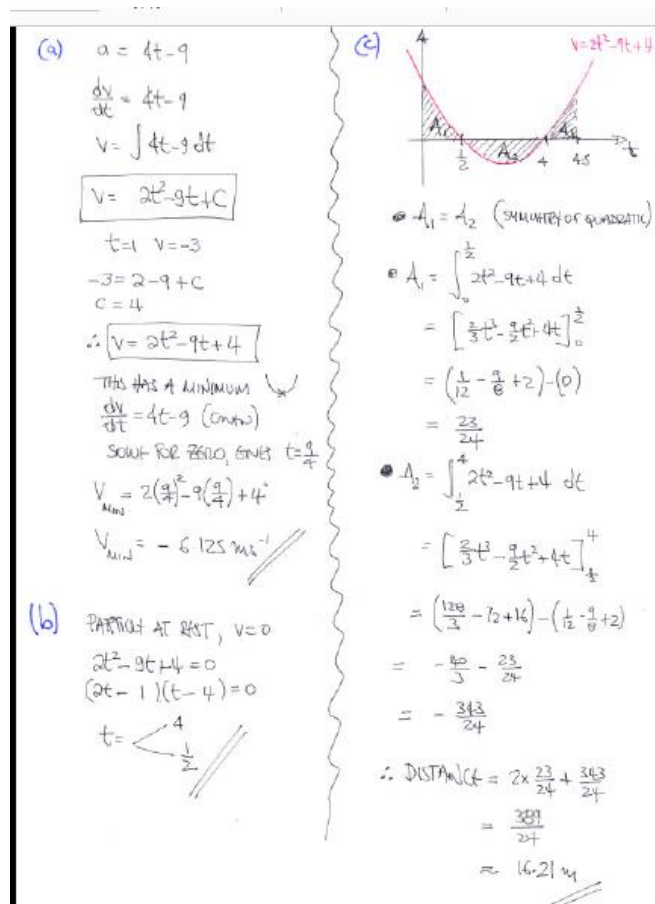 (a)
a = 4t-9
dv/dt = 4t-9
v = ∫ 4t-9 dt
v = 2t²-9t+C
t=1 v=-3
-3 = 2-9+C
C = 4
∴ v = 2t²-9t+4
THIS HAS A MINIMUM
dv/dt = 4t-9
SOLVE FOR ZERO, GIVES t = 9/4
V_MIN = 2(9/4)²-9(9/4)+4
V_MIN = -6.125 ms⁻¹
(b)
PARTICLE AT REST, V=0
2t²-9t+4=0
(2t-1)(t-4)=0
t = 4
1/2
(c)
v=2t²-9t+4
A₁
A₂
1/2
4
4.5
t
A₁ = A₂ (SYMMETRY OF QUADRATIC)
A₁ = ∫₀^½ 2t²-9t+4 dt
= [2/3t³-9/2t²+4t]₀^½
= (1/12-9/8+2)-(0)
= 23/24
A₂ = ∫_½^4 2t²-9t+4 dt
= [2/3t³-9/2t²+4t]_½^4
= (128/3-72+16)-(1/12-9/8+2)
= -40/3-23/24
= -343/24
∴ DISTANCE = 2×23/24+343/24
= 389/24
≈ 16.21 m